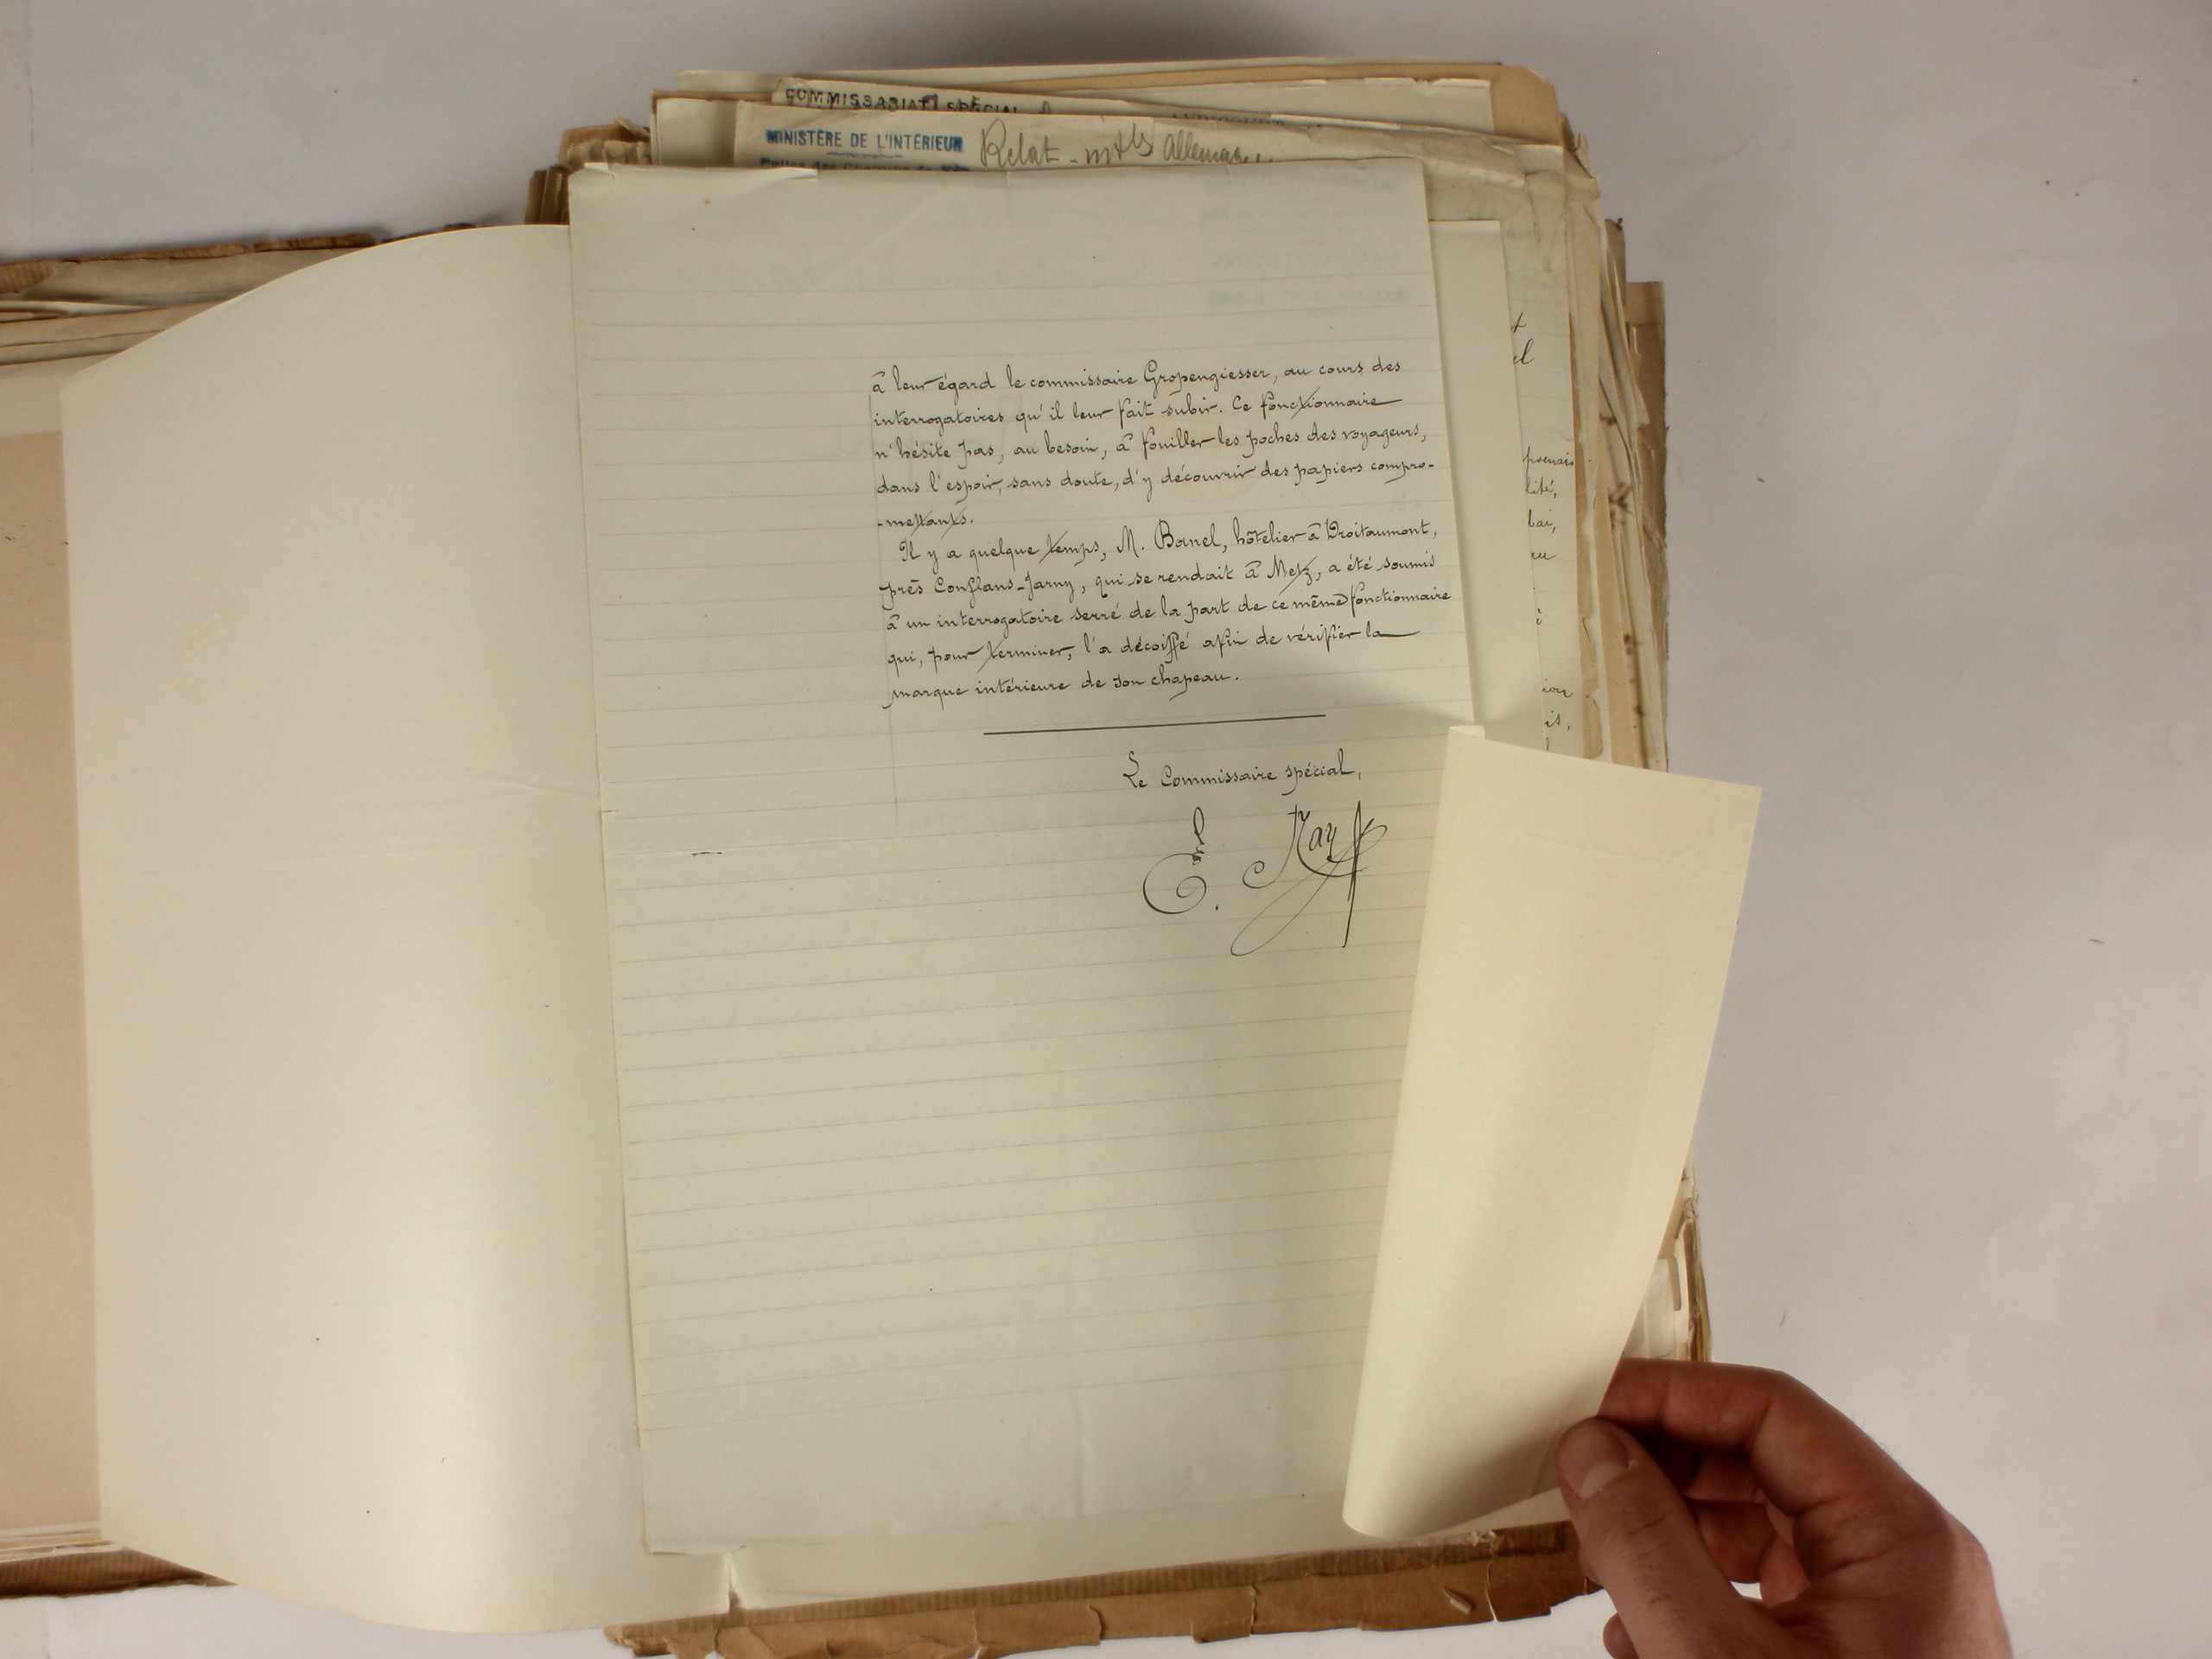 COMMISSARIAT SPÉCIAL
MINISTÈRE DE L'INTÉRIEUR
Relat - mtls
à leur égard le commissaire Gropengiesser, au cours des
interrogatoires qu'il leur fait subir. Ce fonctionnaire
n'hésite pas, au besoin, à fouiller les poches des voyageurs,
dans l'espoir, sans doute, d'y découvrir des papiers compro-
-mettants.
Il y a quelque temps, M. Banel, hôtelier à Droitaumont,
près Conflans-Jarny, qui se rendait à Metz, a été soumis
à un interrogatoire serré de la part de ce même fonctionnaire
qui, pour terminer, l'a décoiffé afin de vérifier la
marque intérieure de son chapeau.
Le Commissaire spécial,